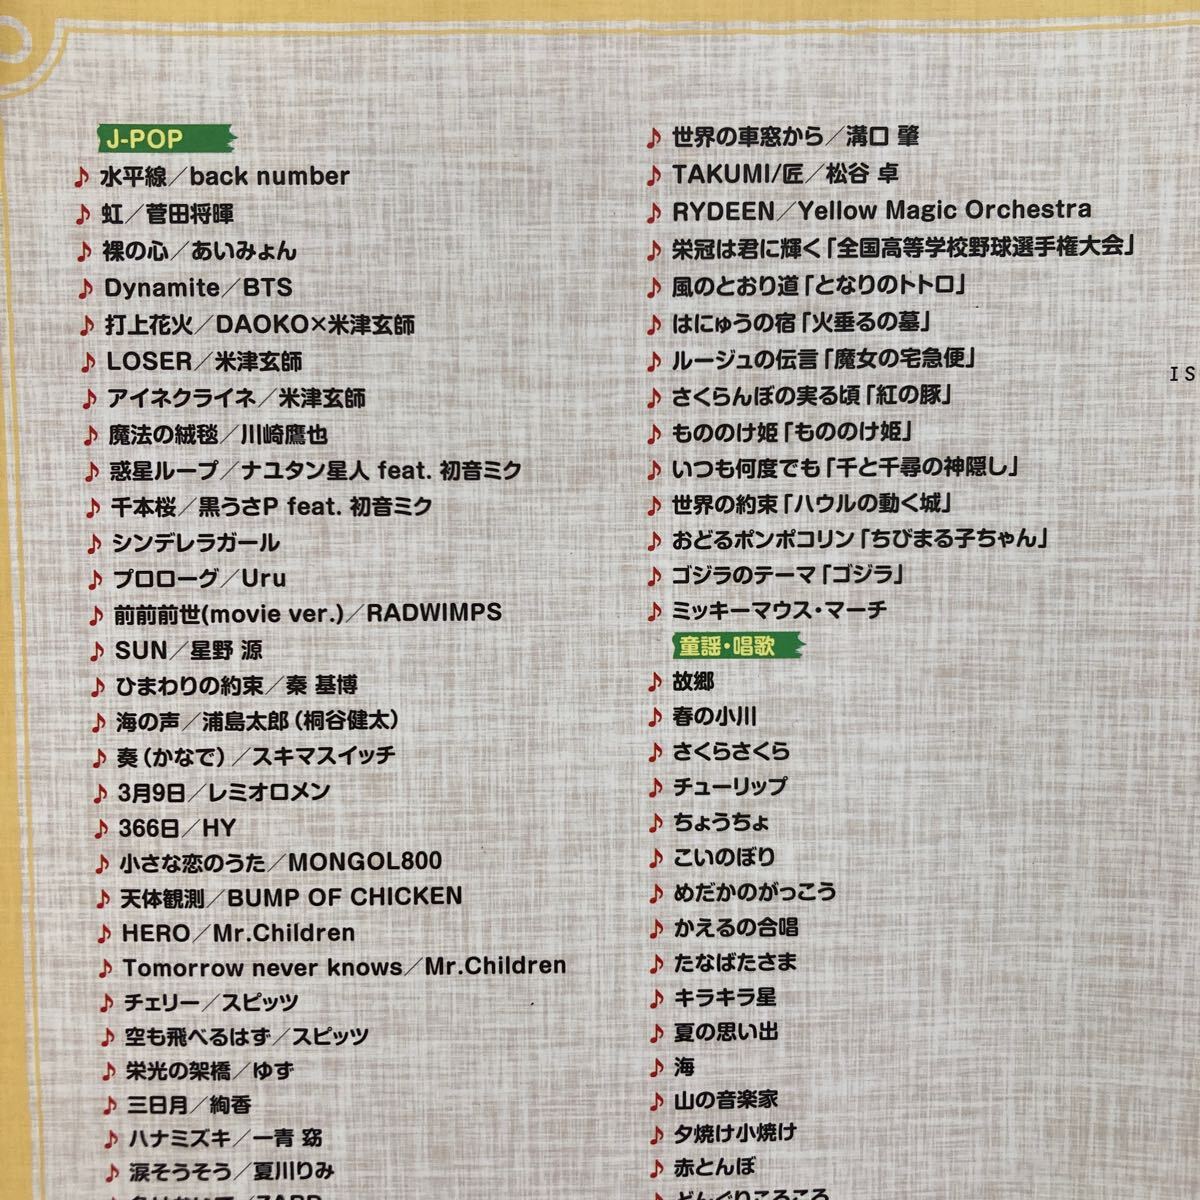 J-POP
♪ 水平線／back number
♪ 虹／菅田将暉
♪ 裸の心／あいみょん
♪ Dynamite／BTS
♪ 打上花火／DAOKO×米津玄師
♪ LOSER／米津玄師
♪ アイネクライネ／米津玄師
♪ 魔法の絨毯／川崎鷹也
♪ 惑星ループ／ナユタン星人 feat. 初音ミク
♪ 千本桜／黒うさP feat. 初音ミク
♪ シンデレラガール
♪ プロローグ／Uru
♪ 前前前世(movie ver.)／RADWIMPS
♪ SUN／星野 源
♪ ひまわりの約束／秦 基博
♪ 海の声／浦島太郎（桐谷健太）
♪ 奏（かなで）／スキマスイッチ
♪ 3月9日／レミオロメン
♪ 366日／HY
♪ 小さな恋のうた／MONGOL800
♪ 天体観測／BUMP OF CHICKEN
♪ HERO／Mr.Children
♪ Tomorrow never knows／Mr.Children
♪ チェリー／スピッツ
♪ 空も飛べるはず／スピッツ
♪ 栄光の架橋／ゆず
♪ 三日月／絢香
♪ ハナミズキ／一青 窈
♪ 涙そうそう／夏川りみ
♪ 世界の車窓から／溝口 肇
♪ TAKUMI/匠／松谷 卓
♪ RYDEEN／Yellow Magic Orchestra
♪ 栄冠は君に輝く「全国高等学校野球選手権大会」
♪ 風のとおり道「となりのトトロ」
♪ はにゅうの宿「火垂るの墓」
♪ ルージュの伝言「魔女の宅急便」
♪ さくらんぼの実る頃「紅の豚」
♪ もののけ姫「もののけ姫」
♪ いつも何度でも「千と千尋の神隠し」
♪ 世界の約束「ハウルの動く城」
♪ おどるポンポコリン「ちびまる子ちゃん」
♪ ゴジラのテーマ「ゴジラ」
♪ ミッキーマウス・マーチ
童謡・唱歌
♪ 故郷
♪ 春の小川
♪ さくらさくら
♪ チューリップ
♪ ちょうちょ
♪ こいのぼり
♪ めだかのがっこう
♪ かえるの合唱
♪ たなばたさま
♪ キラキラ星
♪ 夏の思い出
♪ 海
♪ 山の音楽家
♪ 夕焼け小焼け
♪ 赤とんぼ
♪ どんぐりころころ
IS